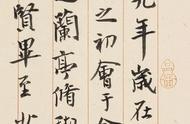 九年歲在
之初會于會
之蘭亭脩禊
賢畢至少